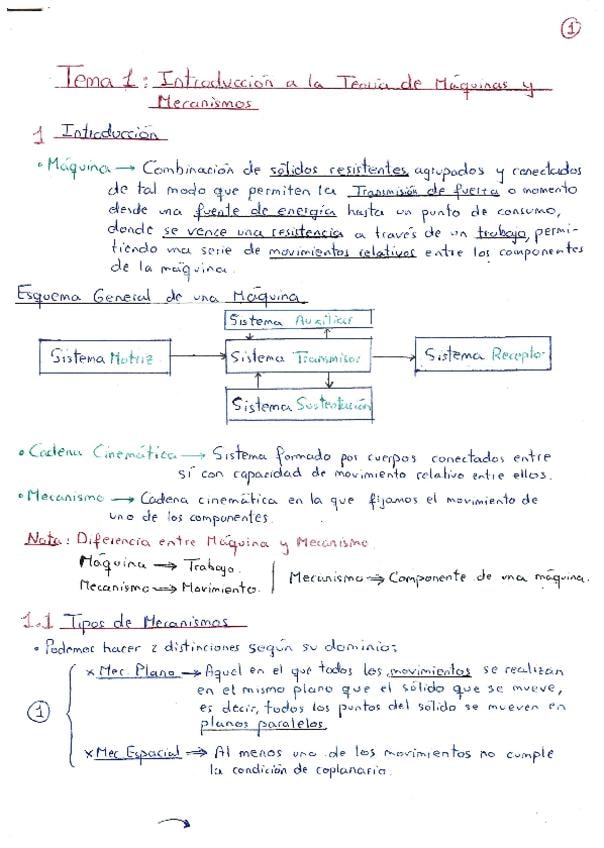 1
Tema 1: Introducción a la Teoría de Máquinas y
Mecanismos
1 Introducción
• Máquina → Combinación de sólidos resistentes agrupados y conectados
de tal modo que permiten la Transmisión de fuerza o momento
desde una fuente de energía hasta un punto de consumo,
donde se vence una resistencia a través de un trabajo, permi-
tiendo una serie de movimientos relativos entre los componentes
de la máquina.
Esquema General de una Máquina
Sistema Auxiliar
Sistema Motriz → Sistema Transmisor → Sistema Receptor
Sistema Sustentación
• Cadena Cinemática → Sistema formado por cuerpos conectados entre
sí con capacidad de movimiento relativo entre ellos.
• Mecanismo → Cadena cinemática en la que fijamos el movimiento de
uno de los componentes.
Nota: Diferencia entre Máquina y Mecanismo.
Máquina → Trabajo.
Mecanismo → Movimiento.
Mecanismo ⇒ Componente de una máquina.
1.1 Tipos de Mecanismos
• Podemos hacer 2 distinciones según su dominio:
1
x Mec. Plano → Aquel en el que todos los movimientos se realizan
en el mismo plano que el sólido que se mueve,
es decir, todos los puntos del sólido se mueven en
planos paralelos.
x Mec Espacial → Al menos uno de los movimientos no cumple
la condición de coplanario.